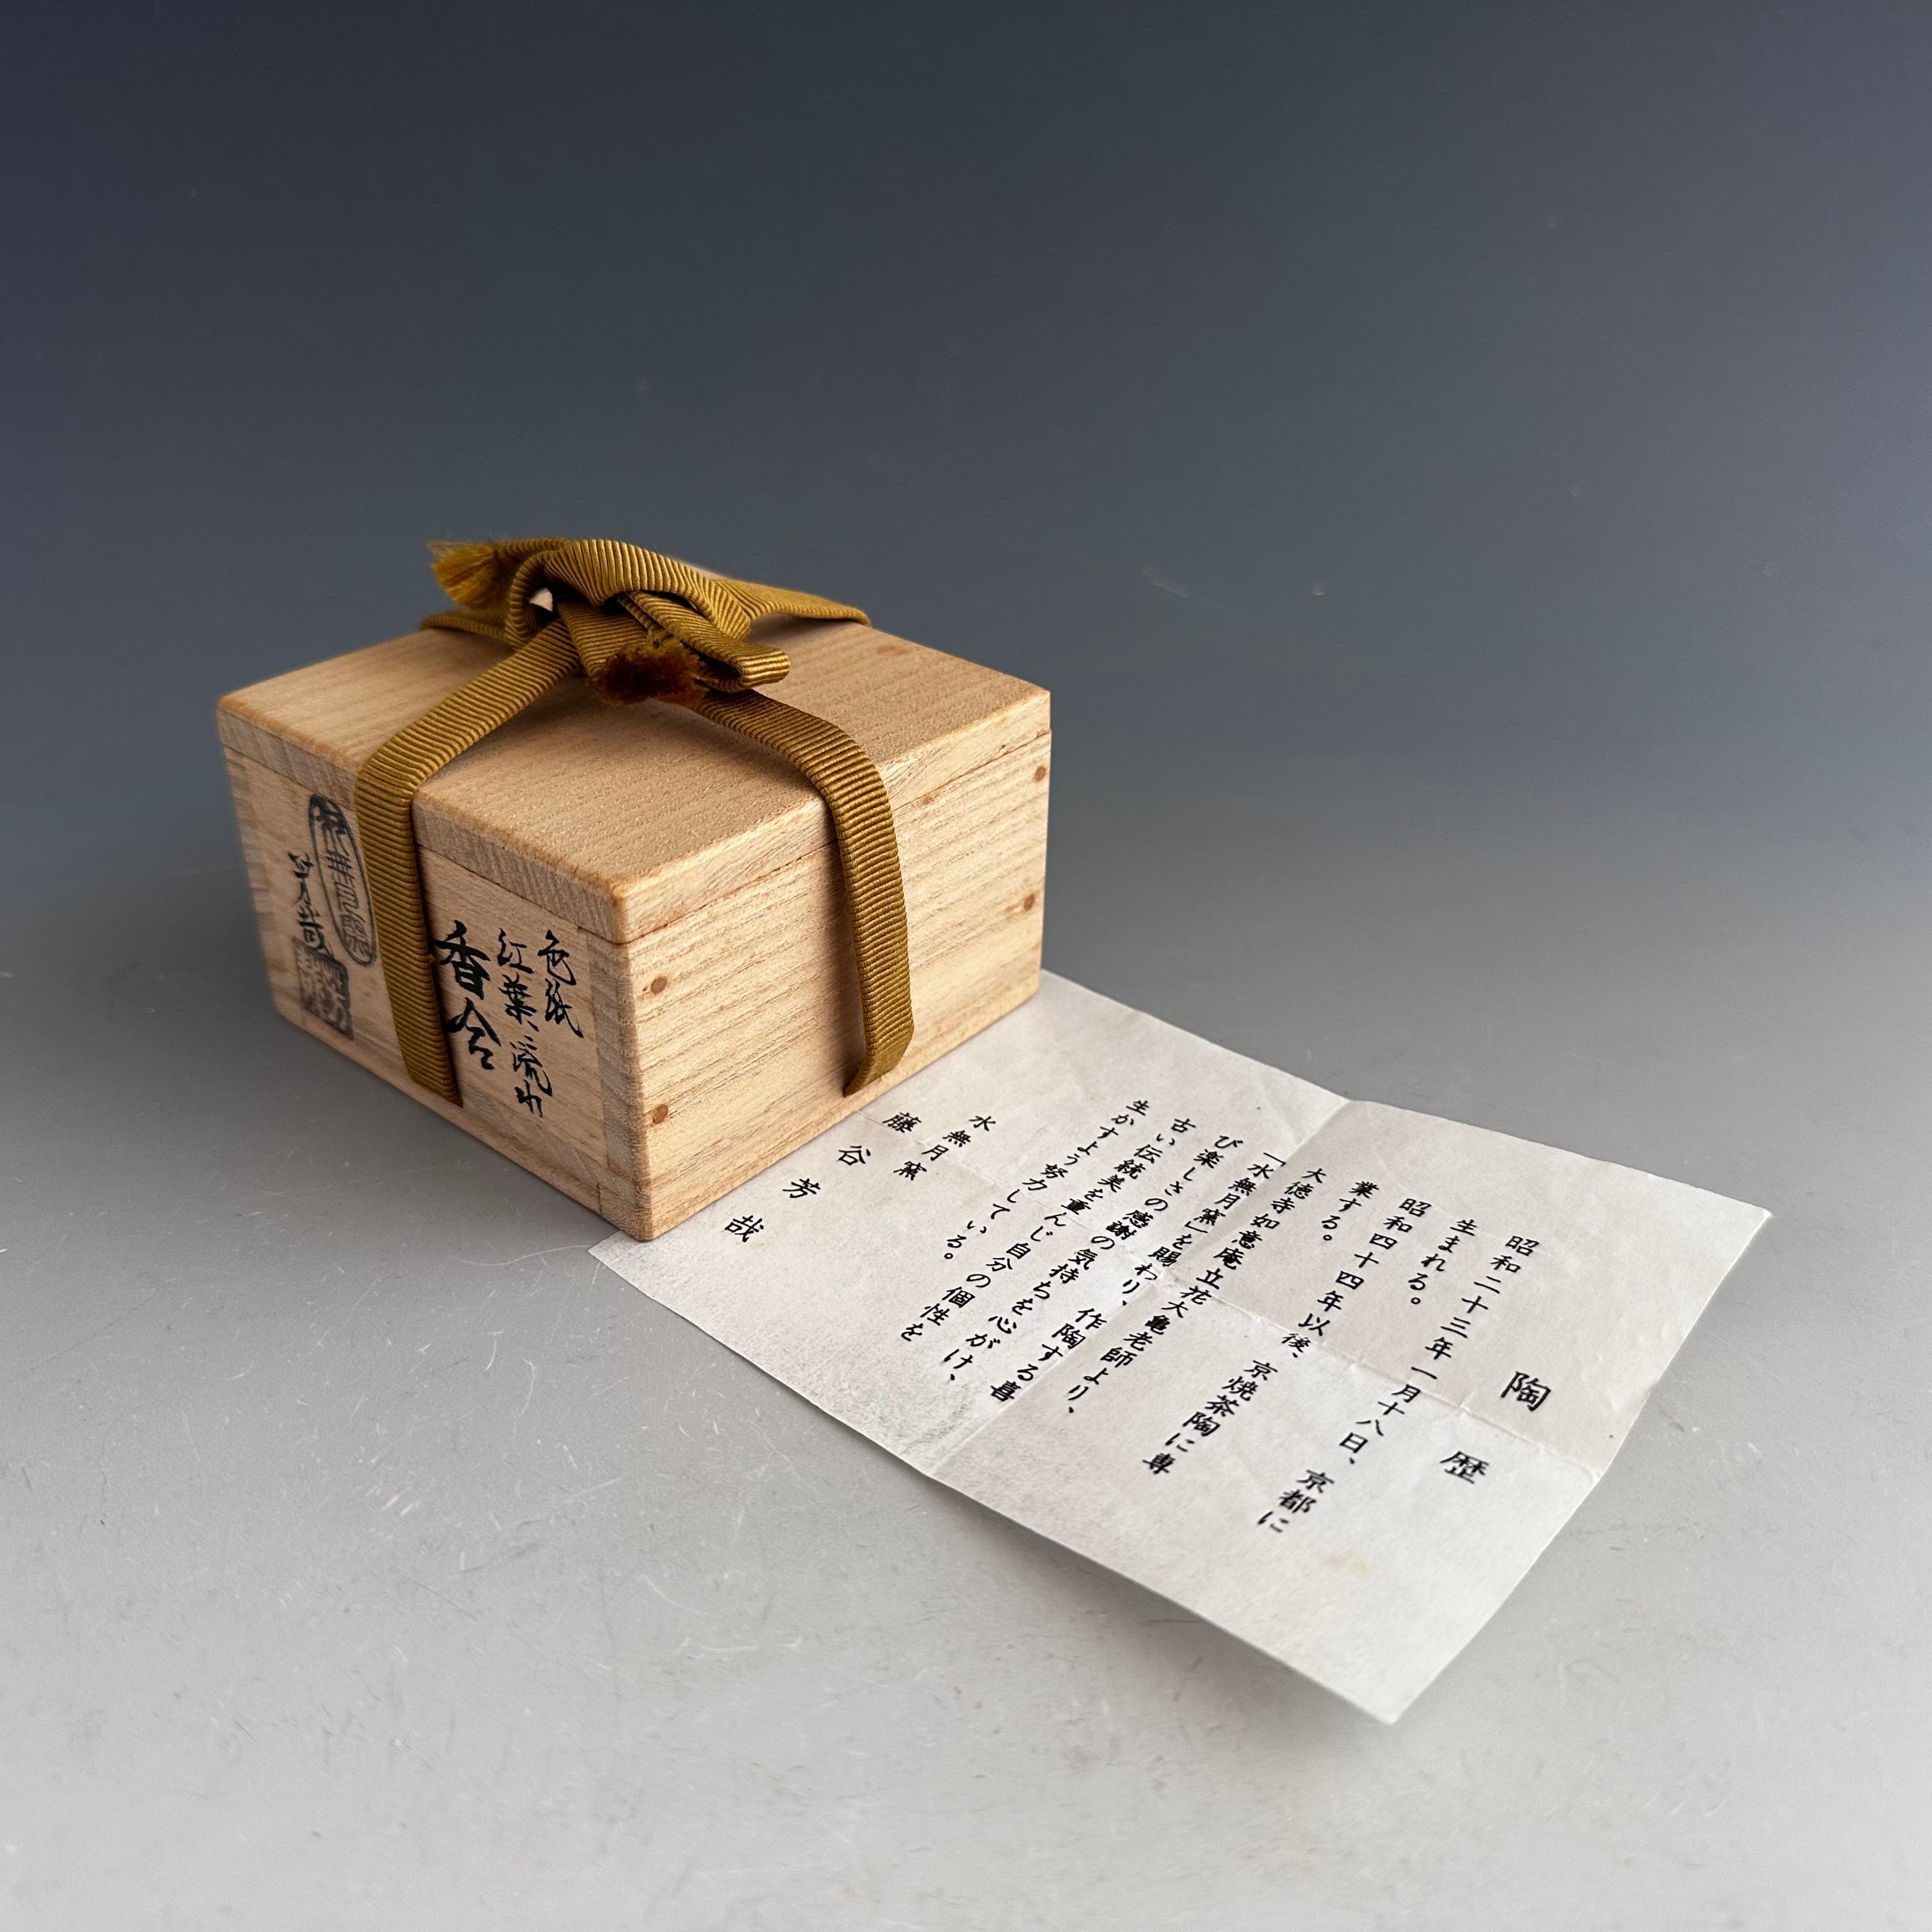 色紙
紅葉ニ流水
香合
陶歴
昭和二十三年一月十八日、京都に
生まれる。
昭和四十四年以後、京焼茶陶に専
業する。
大徳寺如意庵立花大亀老師より、
「水無月窯」を賜わり、作陶する喜
び楽しさの感謝の気持ちを心がけ、
古い伝統美を重んじ自分の個性を
生かすよう努力している。
水無月窯
藤谷芳哉